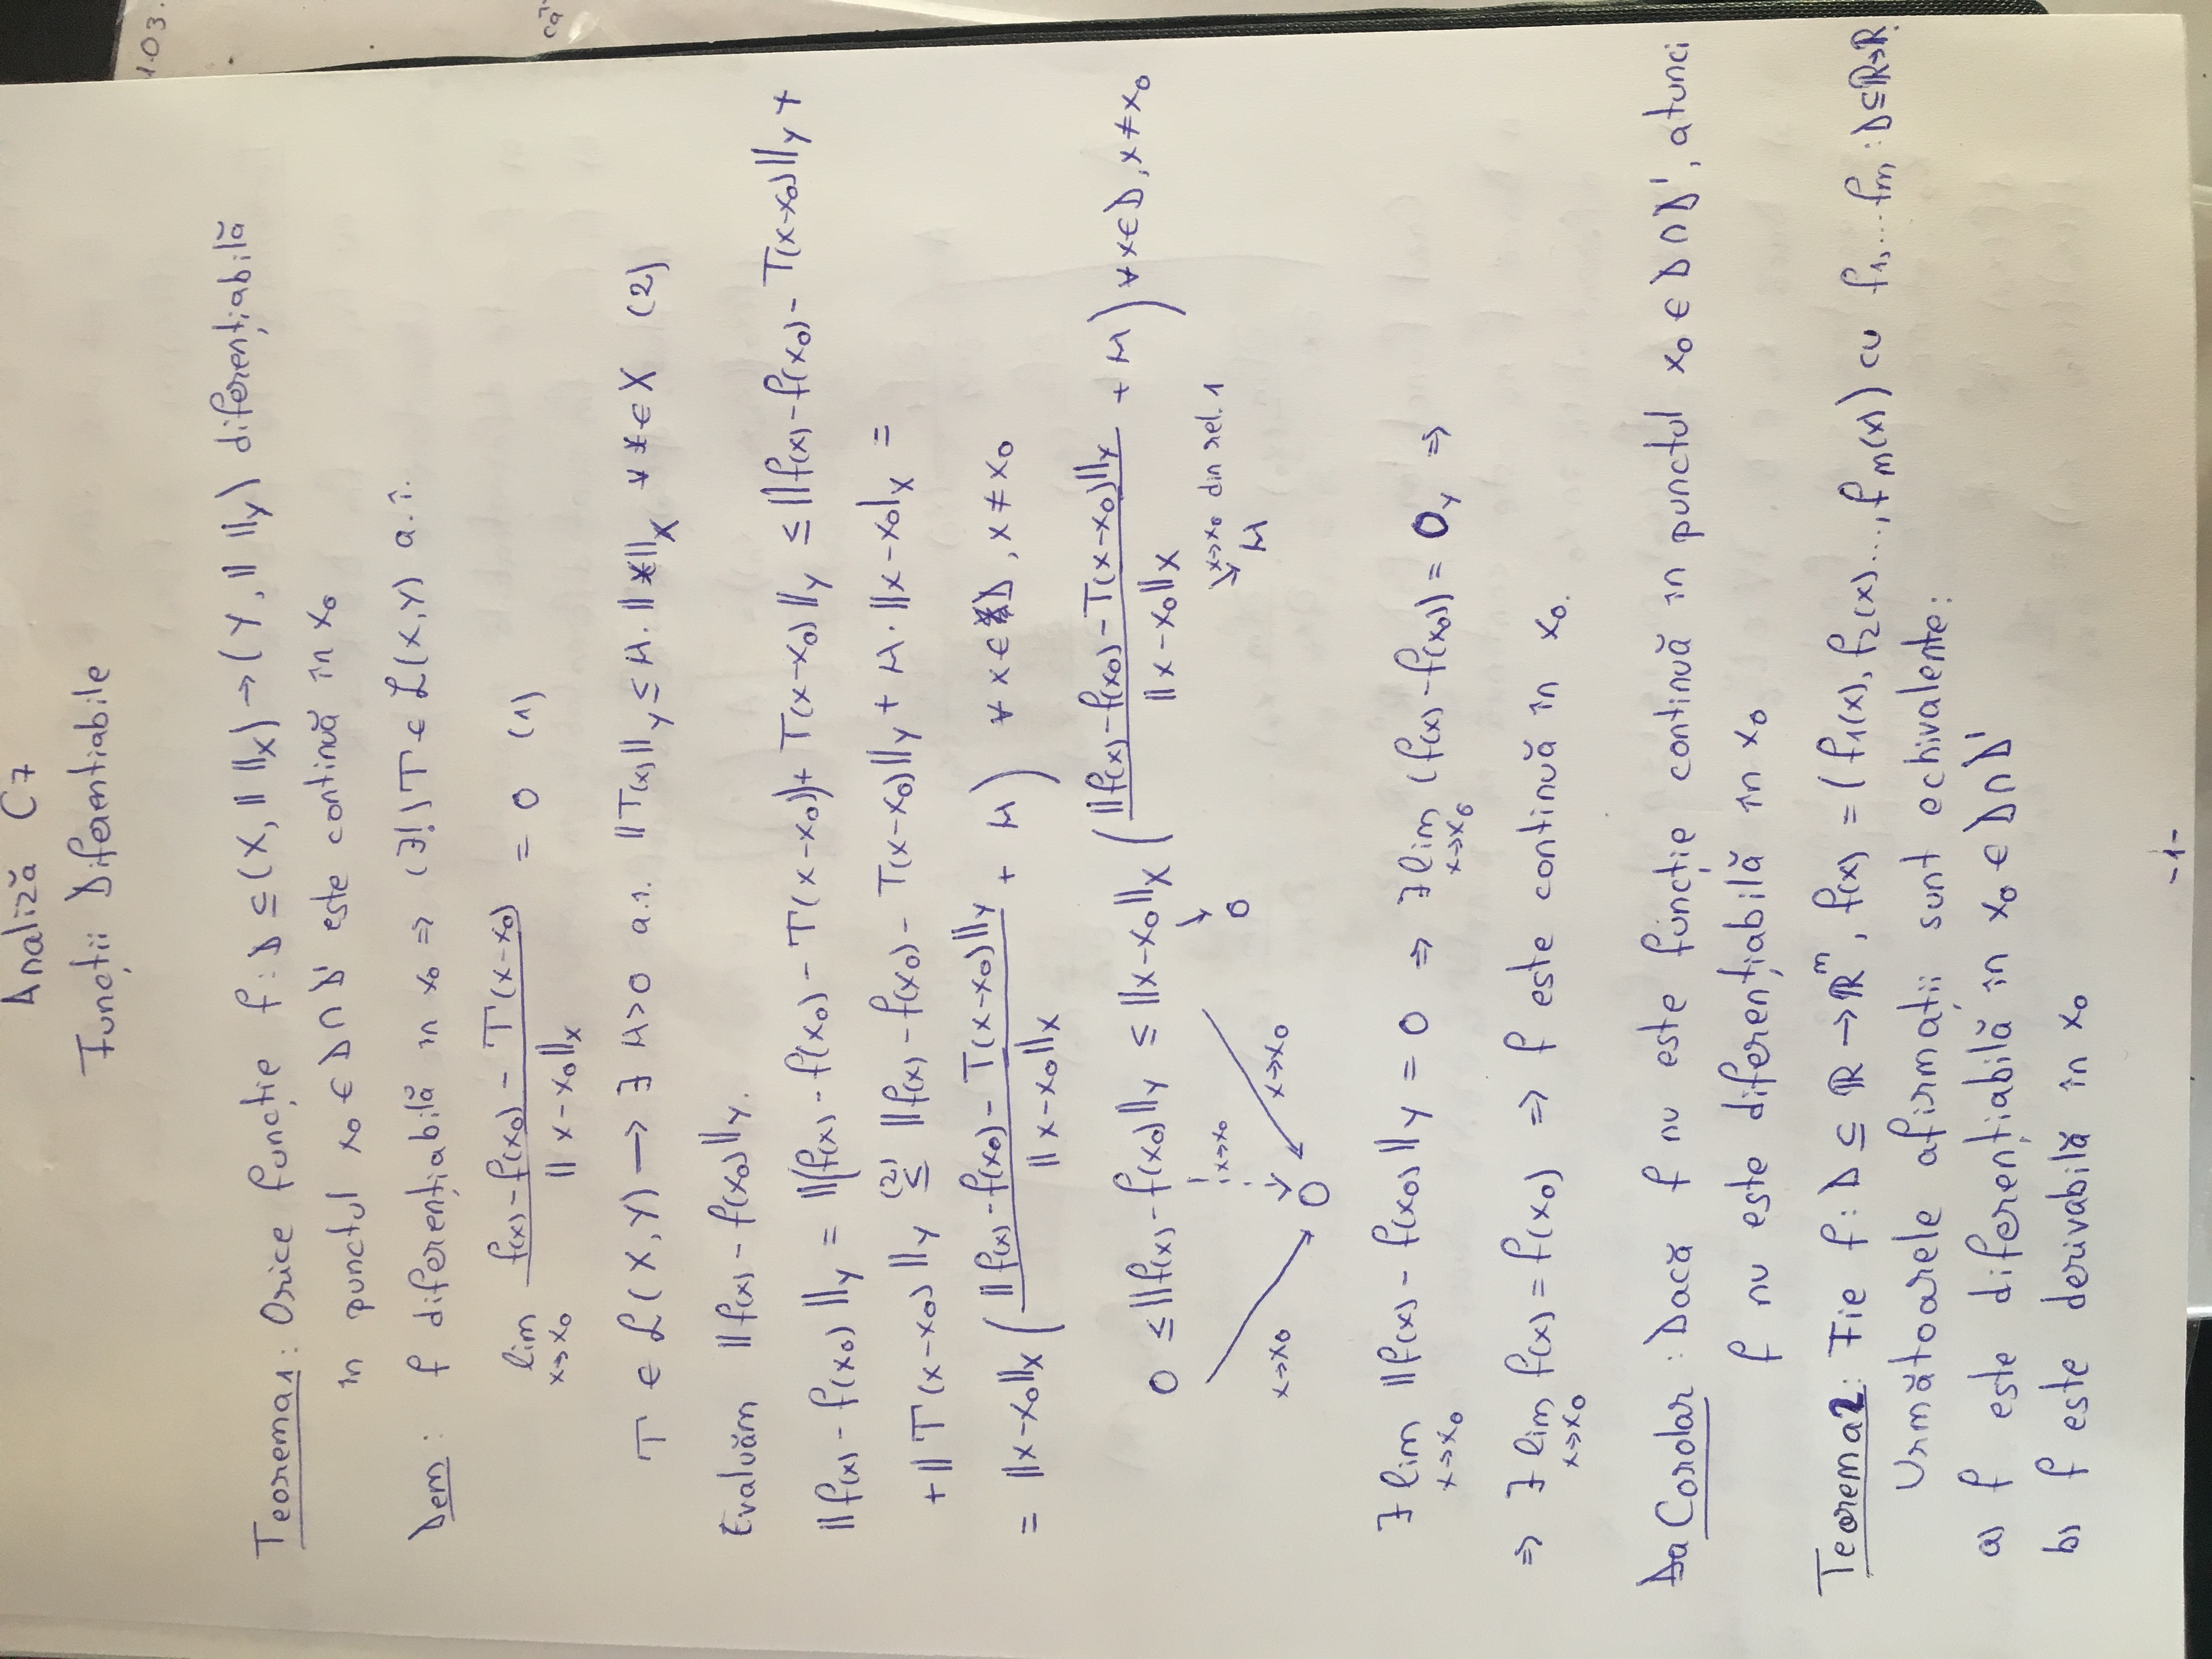 Analiză C7
Funcții Diferentiabile
1.03.
Teorema1: Orice funcție f: D ⊆ (X, || ||_X) → (Y, || ||_Y) diferențiabilă
în punctul x₀ ∈ D ∩ D' este continuă în x₀
Dem: f diferențiabilă în x₀ ⇒ (∃!) T ∈ ℒ(X,Y) a.î.
lim_{x→x₀} (f(x) - f(x₀) - T(x-x₀)) / ||x-x₀||_X = 0 (1)
T ∈ ℒ(X,Y) → ∃ M>0 a.î. ||T(x)||_Y ≤ M·||x||_X ∀ x ∈ X (2)
Evaluăm ||f(x) - f(x₀)||_Y.
||f(x) - f(x₀)||_Y = ||(f(x) - f(x₀) - T(x-x₀)) + T(x-x₀)||_Y ≤ ||f(x) - f(x₀) - T(x-x₀)||_Y +
+ ||T(x-x₀)||_Y ≤^{(2)} ||f(x) - f(x₀) - T(x-x₀)||_Y + M·||x-x₀|_X =
= ||x-x₀||_X ( ||f(x) - f(x₀) - T(x-x₀)||_Y / ||x-x₀||_X + M ) ∀ x ∈ D, x ≠ x₀
0 ≤ ||f(x) - f(x₀)||_Y ≤ ||x-x₀||_X ( ||f(x) - f(x₀) - T(x-x₀)||_Y / ||x-x₀||_X + M ) ∀ x ∈ D, x ≠ x₀
x→x₀ x→x₀ x→x₀ 0 x→x₀ din rel. 1
0 M
∃ lim_{x→x₀} ||f(x) - f(x₀)||_Y = 0 ⇒ ∃ lim_{x→x₀} (f(x) - f(x₀)) = 0_Y ⇒
⇒ ∃ lim_{x→x₀} f(x) = f(x₀) ⇒ f este continuă în x₀.
Da Corolar: Dacă f nu este funcție continuă în punctul x₀ ∈ D ∩ D', atunci
f nu este diferențiabilă în x₀
Teorema2: Fie f: D ⊆ ℝ → ℝ^m, f(x) = (f₁(x), f₂(x)..., f_m(x)) cu f₁,... f_m: D⊆ℝ→ℝ.
Următoarele afirmații sunt echivalente:
a) f este diferențiabilă în x₀ ∈ D ∩ D'
b) f este derivabilă în x₀
-1-